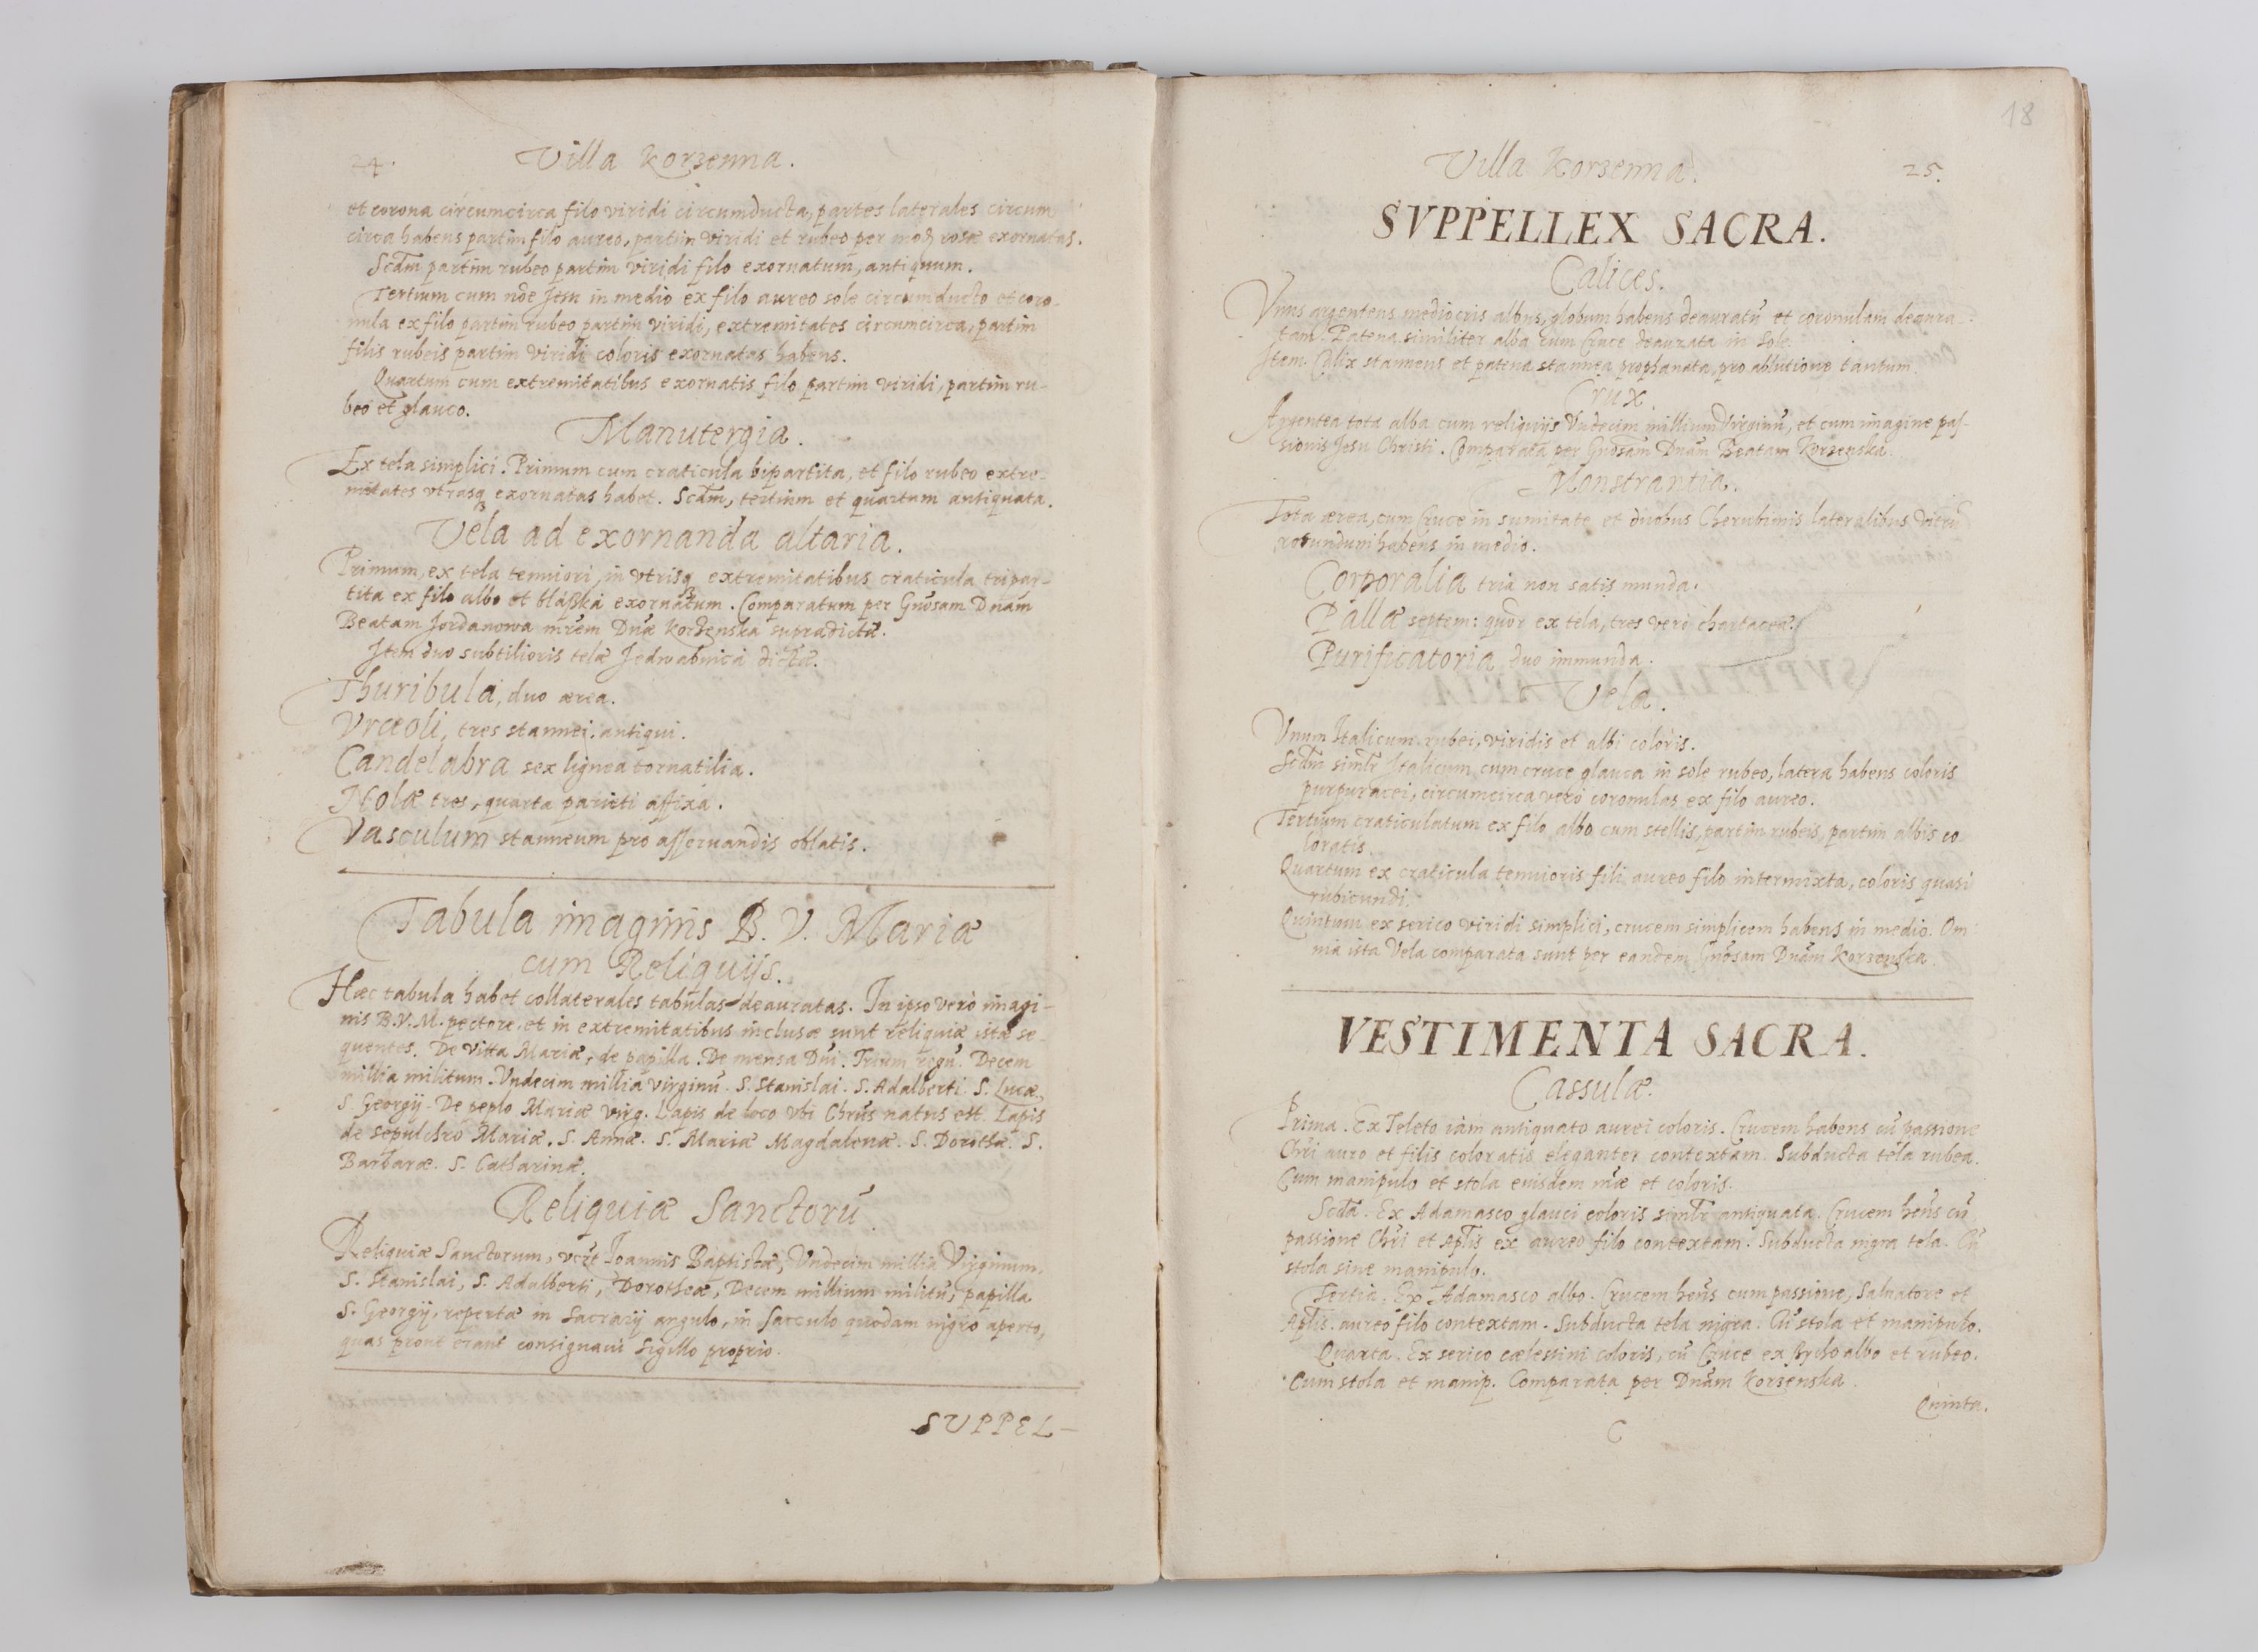 24.
Villa Korzenna.
et corona circumcirca filo viridi circumducta, partes laterales circum
circa habens partim filo aureo, partim viridi et rubeo per mod rosæ exornatas.
Scdm partim rubeo partim viridi filo exornatum, antiquum.
Tertium cum nōe Jesu in medio ex filo aureo sole circumducto et coro-
nula ex filo partim rubeo partim viridi, extremitates circumcirca, partim
filis rubeis partim viridi coloris exornatas habens.
Quartum cum extremitatibus exornatis filo partim viridi, partim ru-
beo et glauco.
Manutergia.
Ex tela simplici. Primum cum craticula bipartita, et filo rubeo extre-
mitates vtrasq exornatas habet. Scdm, tertium et quartum antiquata.
Vela ad exornanda altaria.
Primum, ex tela tenuiori, in vtrisq extremitatibus craticula tripar-
tita ex filo albo et bláßká exornatum. Comparatum per Gnōsam Dnām
Beatam Jordanowa mrēm Dnæ Korzenska supradictæ.
Item duo subtilioris telæ Jedwabnica dictæ.
Thuribula, duo ærea.
Vrceoli, tres stannei antiqui.
Candelabra sex lignea tornatilia.
Nolæ tres, quarta parieti affixa.
Vasculum stanneum pro asseruandis oblatis.
Tabula imaginis B. V. Mariæ
cum Reliquijs.
Hæc tabula habet collaterales tabulas deauratas. In ipso verò imagi-
nis B.V.M. pectore, et in extremitatibus inclusæ sunt reliquiæ istæ se-
quentes. De Vitta Mariæ, de papilla. De mensa Dni. Trium regū. Decem
millia militum. Vndecim millia virginū. S. Stanislai. S. Adalberti. S. Lucæ,
S. Georgij. De peplo Mariæ virg. Lapis de loco vbi Chrūs natus est. Lapis
de sepulchro Mariæ. S. Annæ. S. Mariæ Magdalenæ. S. Dorotheæ. S.
Barbaræ. S. Catharinæ.
Reliquiæ Sanctorū.
Reliquiæ Sanctorum, vczt Joannis Baptistæ, Vndecim millia Virginum,
S. Stanislai, S. Adalberti, Dorotheæ, Decem millium militū, papilla
S. Georgij, repertæ in Sacrarij angulo, in sacculo quodam nigro aperto,
quas prout erant consignaui Sigillo proprio.
SUPPEL-
18
Villa Korzenna.
25.
SVPPELLEX SACRA.
Calices.
Vnus argenteus mediocris albus, globum habens deauratū et coronulam deaura-
tam. Patena similiter alba cum Cruce deaurata in Sole.
Item. Calix stanneus et patena stannea prophanata, pro ablutione tantum.
Crux.
Argentea tota alba cum reliquijs Vndecim millium Virginū, et cum imagine pas-
sionis Jesu Christi. Comparata per Gnōsam Dnām Beatam Korzenska.
Monstrantia.
Tota ærea, cum Cruce in sumitate et duobus Cherubinis lateralibus vitrū
rotundum habens in medio.
Corporalia tria non satis munda.
Pallæ septem: quor ex tela, tres verò chartaceæ.
Purificatoria duo immunda.
Vela.
Vnum Italicum rubei, viridis et albi coloris.
Scdm simlr Italicum cum cruce glauca in sole rubeo, latera habens coloris
purpuracei, circumcirca verò coronulas ex filo aureo.
Tertium craticulatum ex filo albo cum stellis, partim rubeis, partim albis co-
loratis.
Quartum ex craticula tenuioris fili aureo filo intermixta, coloris quasi
rubicundi.
Quintum ex serico viridi simplici, crucem simplicem habens in medio. Om-
nia ista Vela comparata sunt per eandem Gnōsam Dnām Korzenska.
VESTIMENTA SACRA.
Cassulæ.
Prima. Ex Teleto iàm antiquato aurei coloris. Crucem habens cū passione
Chri auro et filis coloratis eleganter contextam. Subducta tela rubea.
Cum manipulo et stola eiusdem mæ et coloris.
Scda. Ex Adamasco glauci coloris simlr antiquata. Crucem hens cū
passione Chri et Aplis ex aureo filo contextam. Subducta nigra tela. Cū
stola sine manipulo.
Tertia. Ex Adamasco albo. Crucem hens cum passione, Saluatore et
Aplis aureo filo contextam. Subducta tela nigra. Cū stola et manipulo.
Quarta. Ex serico cælestini coloris, cū Cruce ex albo et rubeo.
Cum stola et manip. Comparata per Dnām Korzenska.
Quinta.
C